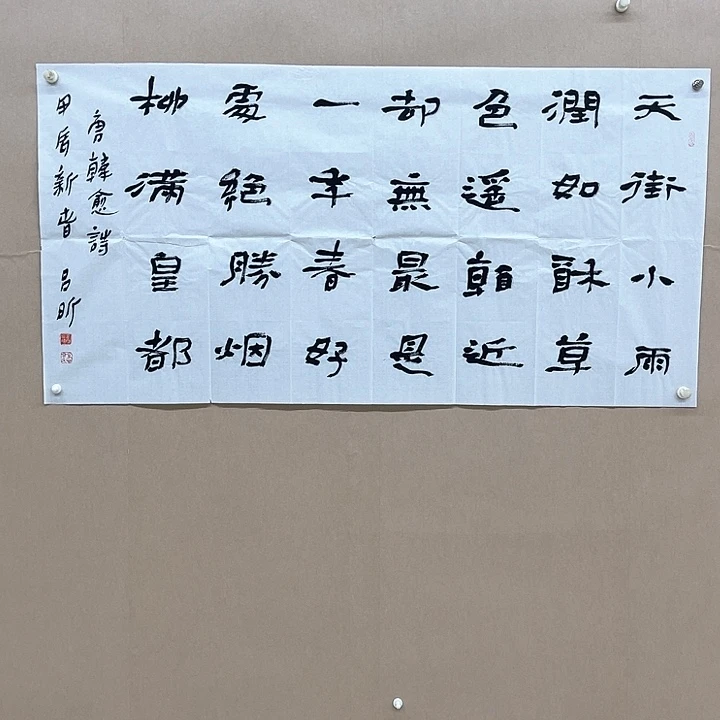 天街小雨
潤如酥草
色遥看近
却無最是
一年春好
處絶勝烟
柳滿皇都
唐韓愈詩
甲辰新春 吕昕